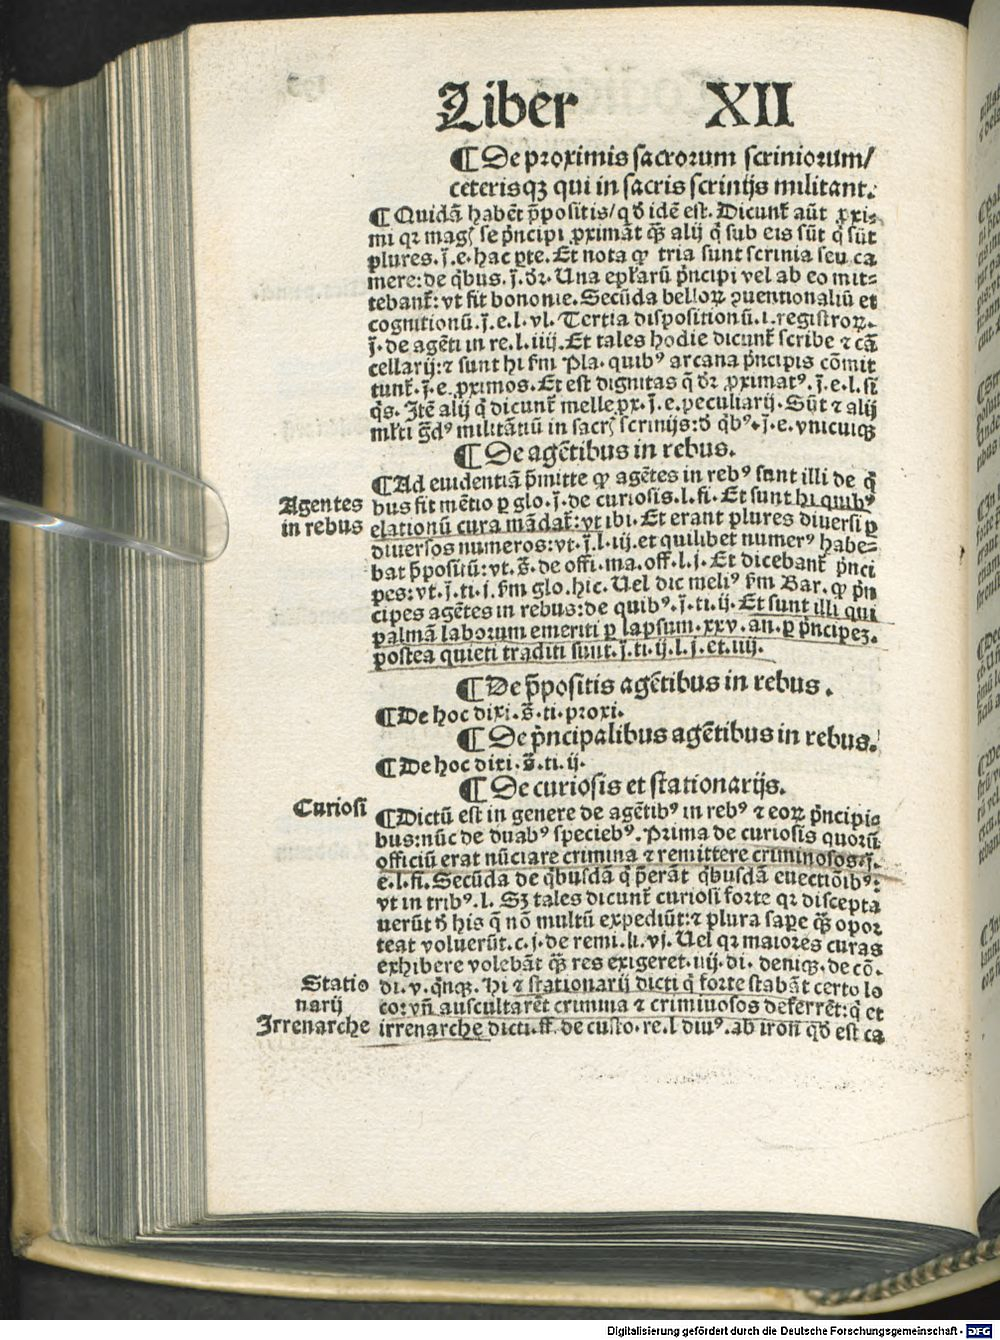 Liber XII
¶ De proximis sacrorum scriniorum/
ceterisqꝫ qui in sacris scrinijs militant.
¶ Quidā habēt p̄positis/ qđ idē est. Dicunt̄ aūt ꝓxi⸗
mi qꝛ mag̾ se p̄ncipi ꝓximāt qꝫ̄ alij q̄ sub eis sūt q̄ sūt
plures. j̄. e. hac ꝑte. Et nota ꝙ tria sunt scrinia seu ca
mere: de q̄bus. j̄. dr̄. Una ep̄laꝛū p̄ncipi vel ab eo mit⸗
tebant̄: vt fit bononie. Secūda belloꝝ ꝯuentionaliū et
cognitionū. j̄. e. l. vl. Tertia dispositionū. i. registroꝝ.
j̄. de agēti in re. l. iiij. Et tales hodie dicunt̄ scribe ⁊ cā
cellarij: ⁊ sunt hi fm̄ Pla. quibꝰ arcana p̄ncipis cōmit
tunt̄. j̄. e. ꝓximos. Et est dignitas q̄ dr̄ ꝓximatꝰ. j̄. e. l. si
q̄s. Itē alij q̄ dicunt̄ melle.ꝓx. j̄. e. peculiarij. Sūt ⁊ alij
ml̄ti ḡdꝰ militātiū in sacr̄ scrinijs: đ q̄bꝰ. j̄. e. vnicuiqꝫ
¶ De agētibus in rebus.
¶ Ad euidentiā p̄mitte ꝙ agētes in rebꝰ sunt illi de q̄
Agentes bus fit mētio ꝑ glo. j̄. de curiosis. l. fi. Et sunt hi quibꝰ
in rebus elationū cura mādat̄: vt ibi. Et erant plures diuersi ꝑ
diuersos numeros: vt. j̄. l. iij. et quilibet numerꝰ habe⸗
bat p̄positū: vt. s̄. de offi. ma. off. l. j. Et dicebant̄ p̄nci
pes: vt. j̄. ti. j. fm̄ glo. hic. Uel dic meliꝰ fm̄ Bar. ꝙ p̄n
cipes agētes in rebus: de quibꝰ. j̄. ti. ij. Et sunt illi qui
palmā laborum emeriti ꝑ lapsum. xxv. an. ꝑ p̄ncipeꝫ.
postea quieti traditi sunt. j̄. ti. ij. l. j. et. iiij.
¶ De p̄positis agētibus in rebus.
¶ De hoc dixi. s̄. ti. proxi.
¶ De p̄ncipalibus agētibus in rebus.
¶ De hoc dixi. s̄. ti. ij.
¶ De curiosis et stationarijs.
Curiosi ¶ Dictū est in genere de agētibꝰ in rebꝰ ⁊ eoꝝ p̄ncipia
bus: nūc de duabꝰ speciebꝰ. Prima de curiosis quorū
officiū erat nūciare crimina ⁊ remittere criminosos: j̄.
e. l. fi. Secūda de q̄busdā q̄ p̄erāt q̄busdā euectiōibꝰ:
vt in tribꝰ. l. Sꝫ tales dicunt̄ curiosi forte qꝛ discepta
uerūt đ his q̄ nō multū expediūt: ⁊ plura sape qꝫ̄ opoꝛ
teat voluerūt. c. j. de remi. li. vj. Uel qꝛ maiores curas
exhibere volebāt qꝫ̄ res exigeret. iiij. di. deniqꝫ. de cō.
Statio di. v. q̄nqꝫ. Hi ⁊ stationarij dicti q̄ forte stabāt certo lo
narij co: vn̄ auscultarēt crimina ⁊ crimiuosos deferrēt: q̄ et
Irrenarche irrenarche dictu. ff. de custo. re. l diuꝰ. ab iron̄ qđ est ca
Digitalisierung gefördert durch die Deutsche Forschungsgemeinschaft - DFG